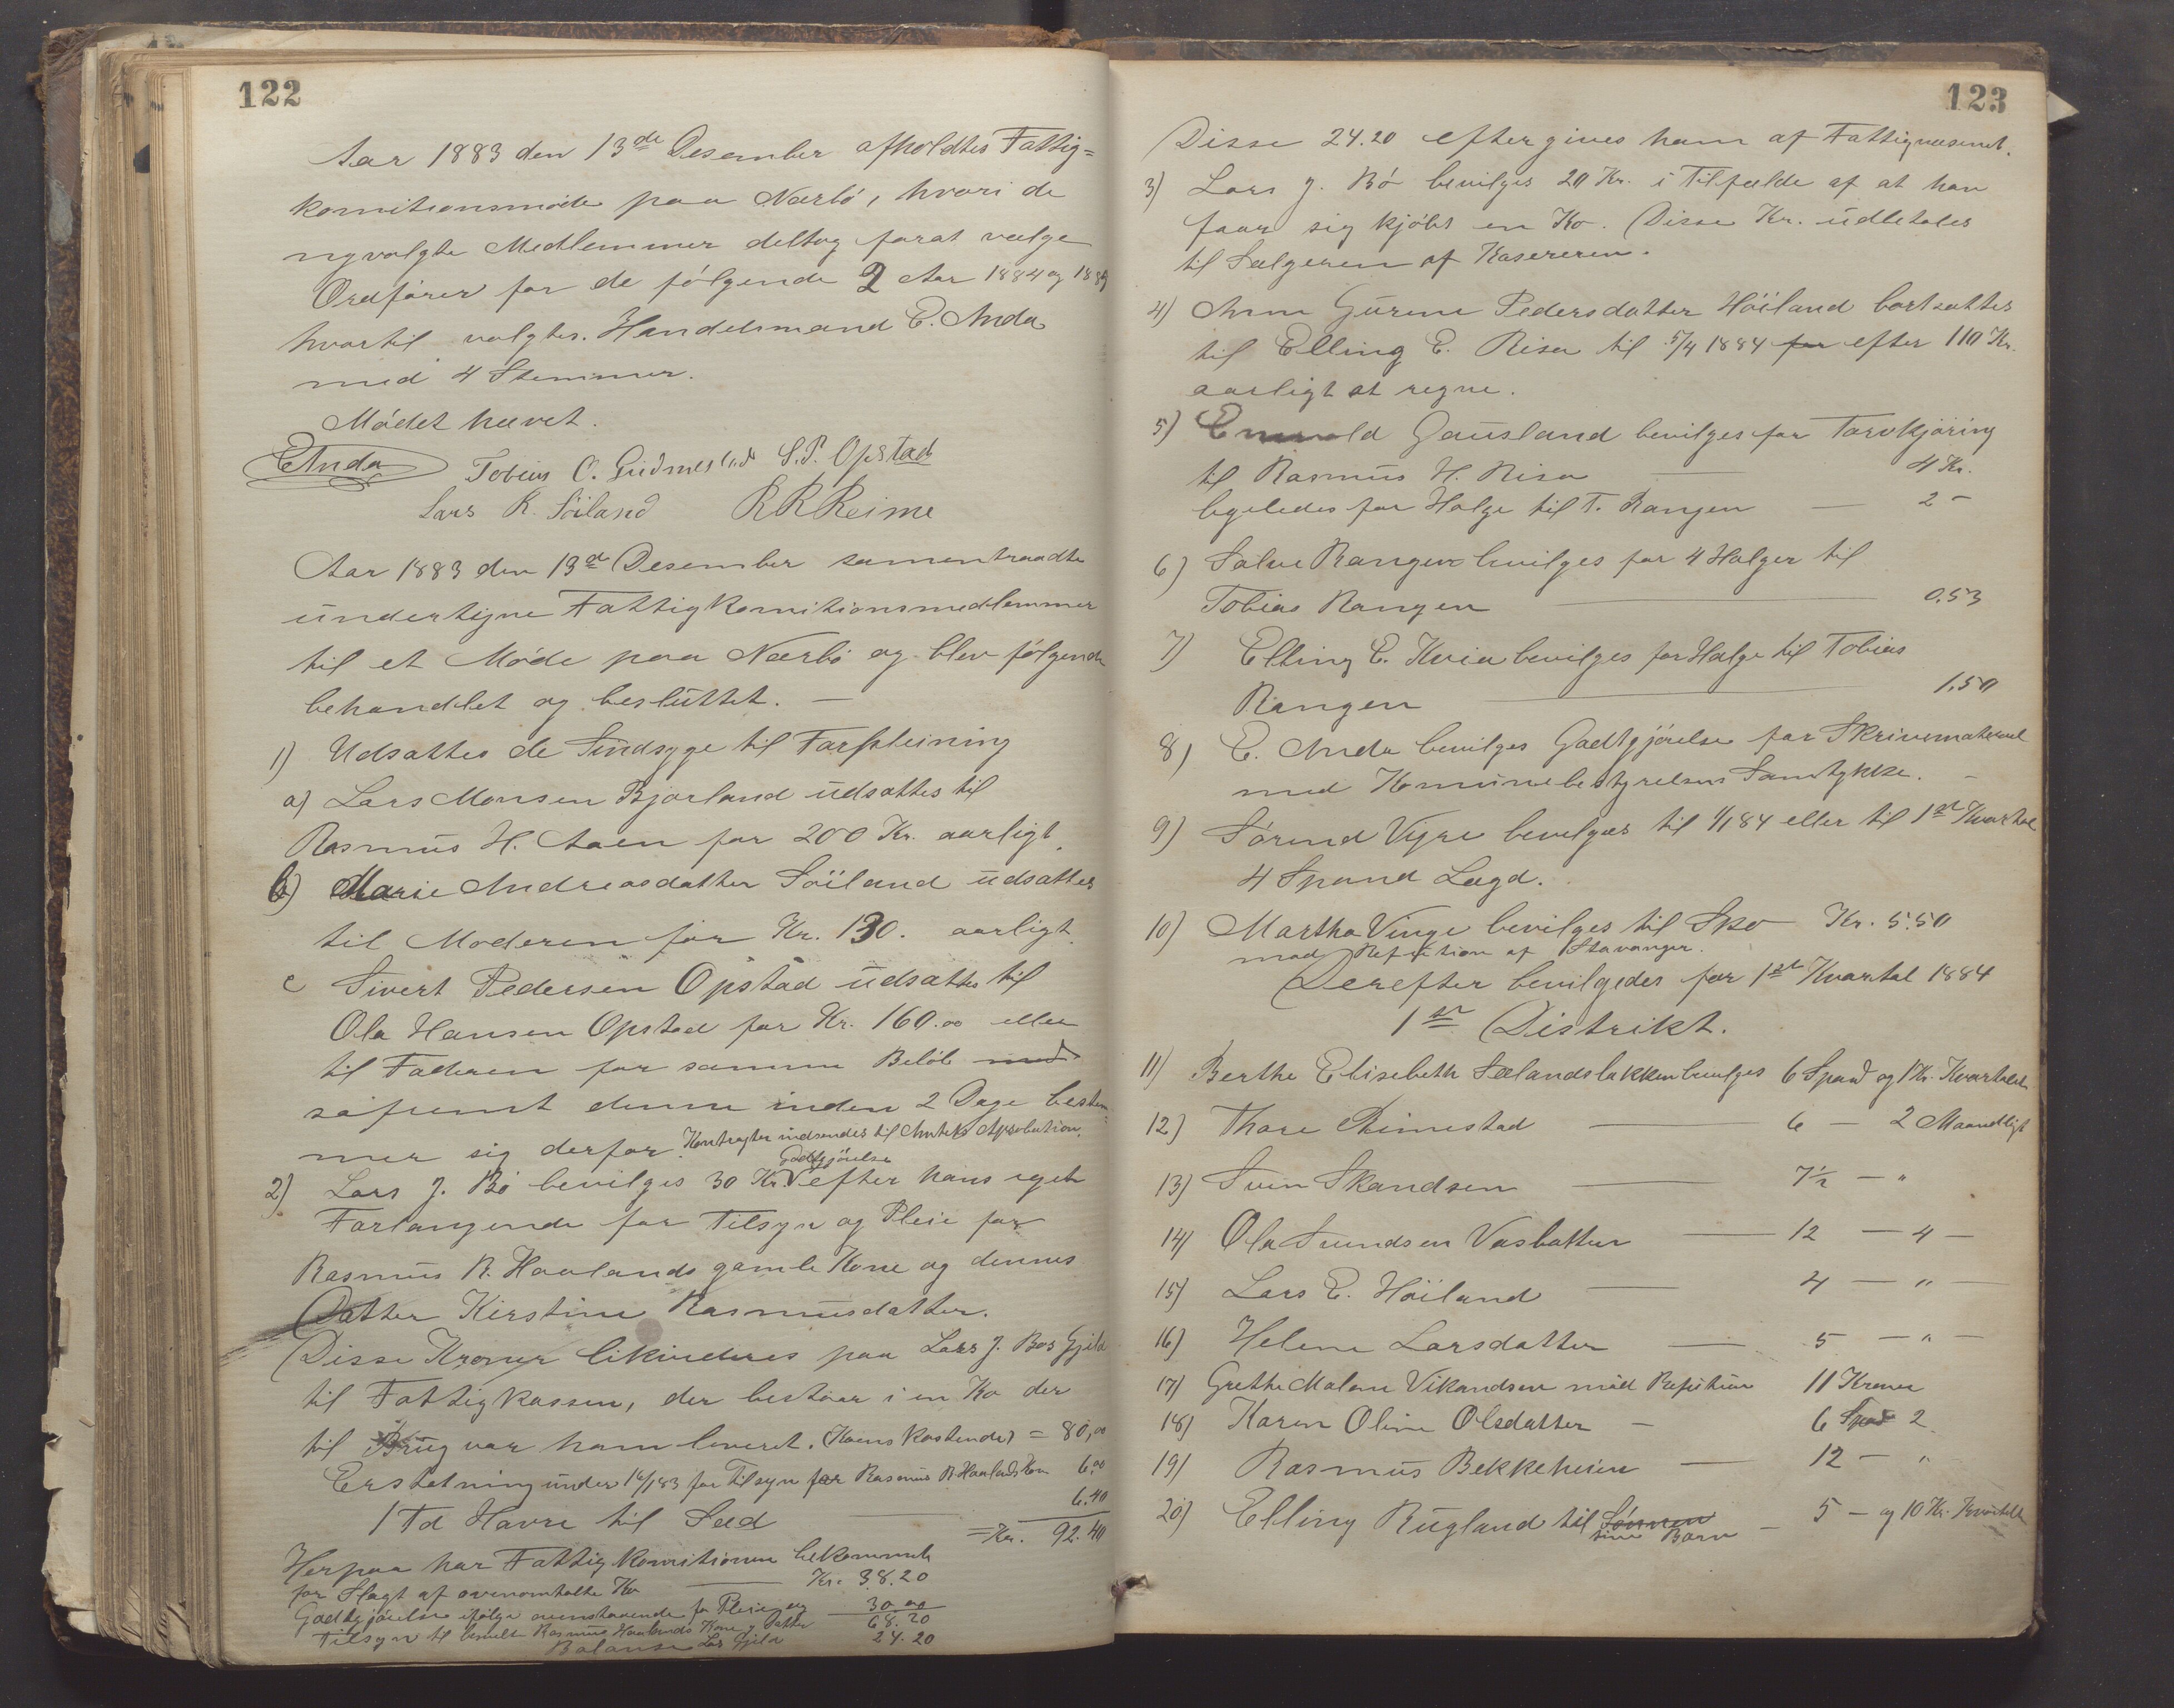 122
Aar 1883 den 13de Desember afholdtes Fattig=
komitionsmøde paa Nærbø, hvori de
nyvalgte Medlemmer deltog forat vælge
Ordfører for de følgende 2 Aar 1884 og 1885
hvortil valgtes Handelsmand E. Anda
med 4 Stemmer.
Mødet hævet.
E Anda Tobias O. Gudmestad S. P. Opstad
Lars R. Söiland R R Reime
Aar 1883 den 13de Desember samentraadte
undertegne Fattigkomitionsmedlemmer
til et Møde paa Nærbø og blev følgende
behandlet og besluttet. —
1) Udsattes de Sindsyge til Forpleining
a) Lars Monsen Bjorland udsattes til
Rasmus H. Aaen for 200 Kr. aarligt.
b) Marie Andreasdatter Söiland udsattes
til Moderen for Kr. 130. aarligt.
c Sivert Pedersen Opstad udsattes til
Ola Hansen Opstad for Kr. 160.00 eller
til Faderen for samme Beløb med
såfremt denne inden 2 Dage bestem=
mer sig derfor. Kontragter indsendes til Amtets Aprobation.
2) Lars J. Bø bevilges 30 Kr. Godtgjörelse efter hans eget
Forlangende for Tilsyn og Pleie for
Rasmus R. Haalands gamle Kone og dennes
Datter Kirstine Rasmusdatter.
Disse Kroner likvideres paa Lars J. Bøs Gjeld
til Fattigkassen, der bestaar i en Ko der
til Brug var ham leveret. (Koens Kostende) = 80,00
Erstatning under 16/1 83 for Tilsyn for Rasmus R. Haalands Kone 6.00
1 Td Havre til Sæd 6.40
= Kr. 92.40
Herpaa har Fattigkomitionen bekommet
for Slagt af ovenomtalte Ko — Kr. 38.20
Godtgjörelse ifølge ovenstaaende for Pleie og 30 00
Tilsyn til Rasmus Haalands Kone og Datter 68.20
Balanse Lars Gjeld 24.20
123
Disse 24.20 eftergives ham af Fattigvæsenet.
3) Lars J. Bø bevilges 20 Kr. i Tilfælde af at han
faar sig kjøbt en Ko. Disse Kr. udbetales
til Sælgeren af Kasereren.
4) Ann Gurine Pedersdatter Höiland bortsattes
til Elling E. Risa til 5/4 1884 for efter 110 Kr.
aarligt at regne.
5) Enevald Gausland bevilges for Torvkjøring
til Rasmus H. Risa — 4 Kr.
ligeledes for Halge til T. Rangen — 2 —
6) Salve Rangen bevilges for 4 Halger til
Tobias Rangen — 0.53
7) Elling E. Kvia bevilges for Halge til Tobias
Rangen — 1.50
8) E. Anda bevilges Godtgjörelse for Skrivemateriel
med Komunebestyrelsens Samtykke. —
9) Sörine Vigre bevilges til 1/1 84 eller til 1st Kvartal
4 Spand Lagd.
10) Martha Vinge bevilges til Sko Kr. 5.50
med Refution af Stavanger.
Derefter bevilgedes for 1ste Kvartal 1884
1ste Distrikt.
11) Berthe Elisebeth Sælandsbakken bevilges 6 Spand og 1 Kr. Kvartalet
12) Thore Rimestad — 6 — 2 Maandligt
13) Sven Skandsen — 7½ — "
14) Ola Svendsen Vasbotten — 12 — 4 —
15) Lars E. Höiland — 4 — " —
16) Helene Larsdatter — 5 — " —
17) Grethe Malene Vikandsen med Refution 11 Kroner
18) Karen Oline Olsdatter — 6 Spand 2
19) Rasmus Bekkeheien — 12 — "
20) Elling Rugland til Sönnen — 5 — og 10 Kr. Kvartalet
sine Børn